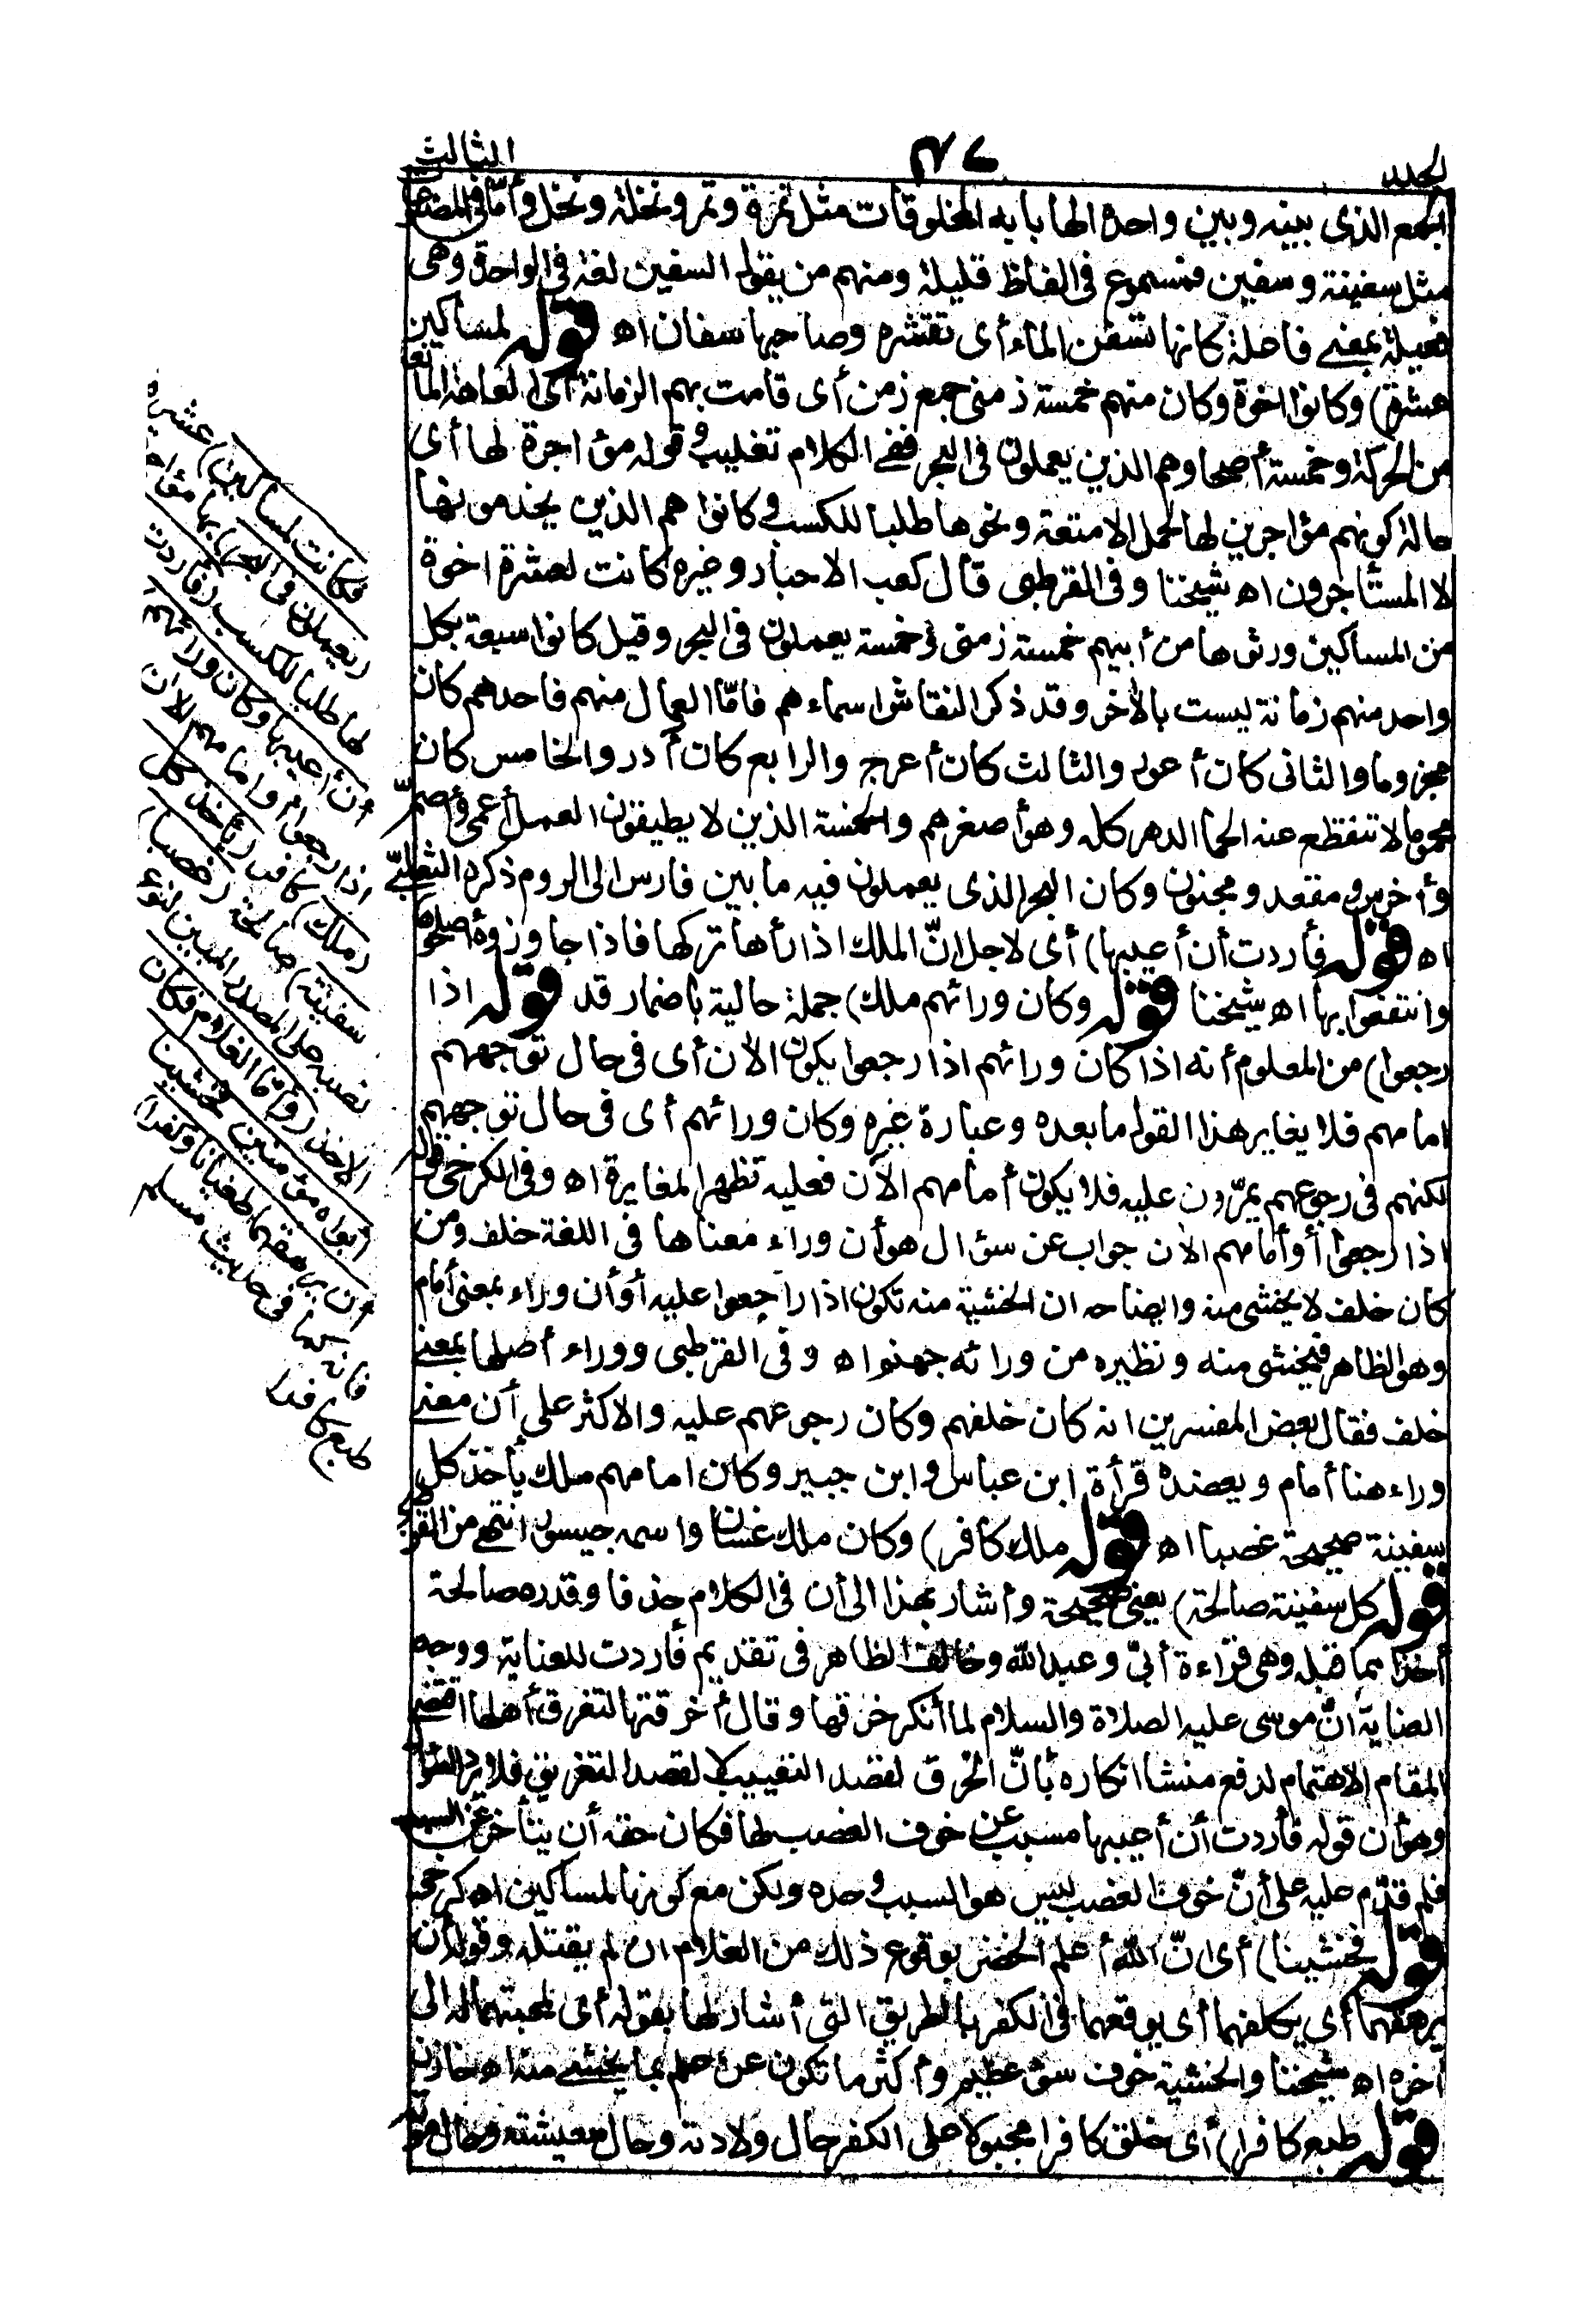 الجلد
٤٧
الثالث
الجمع الذى بينه وبين واحده الها بابه المخلوقات مثل تمرة وتمر ونخلة ونخل وأمّا فى المصنوعا
مثل سفينة وسفين فمسموع فى الفاظ قليلة ومنهم من يقول السفين لغة فى الواحدة وهى
فعيلة بمعنى فاعلة كانها تسفن الماء أى تقشره وصاحبها سفان اه قوله لمساكين
عشرة) وكانوا اخوة وكان منهم خمسة زمنى جمع زمن أى قامت بهم الزمانة أى العاهة المانعة
من الحركة وخمسة أصحا وهم الذين يعملون فى البحر ففى الكلام تغليب وقوله مؤاجرة لها أى
حالة كونهم مؤاجرين لها لحمل الامتعة ونحوها طلبا للكسب وكانوا هم الذين يخدمونها
لا المستأجرون اه شيخنا وفى القرطبى قال كعب الاحبار وغيره كانت لعشرة اخوة
من المساكين ورثوها من أبيهم خمسة زمنى وخمسة يعملون فى البحر وقيل كانوا سبعة بكل
واحد منهم زمانة ليست بالأخر وقد ذكر النقاش اسماءهم فامّا العمال منهم فاحدهم كان
مجزوما والثانى كان أعور والثالث كان أعرج والرابع كان أدر والخامس كان
محموما لا تنقطع عنه الحما الدهر كله وهو أصغرهم والخمسة الذين لا يطيقون العمل أعمى وأصمّ
وأخرس ومقعد ومجنون وكان البحر الذى يعملون فيه ما بين فارس الى الروم ذكره الثعلبىّ
اه قوله فأردت أن أعيبها) أى لاجل انّ الملك اذا رأها تركها فاذا جاوزوه أصلحوها
وانتفعوا بها اه شيخنا قوله وكان ورائهم ملك) جملة حالية باضمار قد قوله اذا
رجعوا) من المعلوم أنه اذا كان ورائهم اذا رجعوا يكون الأن أى فى حال توجههم
امامهم فلا يغاير هذا القول ما بعده وعبارة غيره وكان ورائهم أى فى حال توجههم
لكنهم فى رجوعهم يمرّون عليه فلا يكون أمامهم الآن فعليه تظهر المغايرة اه وفى الكرخى قوله
اذا رجعوا أو أمامهم الأن جواب عن سؤال هو أن وراء معناها فى اللغة خلف ومن
كان خلف لا يخشى منه وايضاحه ان الخشية منه تكون اذا راجعوا عليه أو أن وراء بمعنى أمام
وهو الظاهر فيخشى منه ونظيره من ورائه جهنم اه وفى القرطبى ووراء أصلها بمعنى
خلف فقال بعض المفسرين انه كان خلفهم وكان رجوعهم عليه والاكثر على أن معنى
وراء هنا أمام ويعضده قرأة ابن عباس وابن جبير وكان امامهم ملك يأخذ كل
سفينة صحيحة غصبا اه قوله ملك كافر) وكان ملك غسان واسمه جيسور انتهى من القرطبى
قوله كل سفينة صالحة) يعنى صحيحة وأشار بهذا الى أن فى الكلام حذفا وقدره صالحة
أخذا بما قبله وهى قراءة أبىّ وعبد الله وخالف الظاهر فى تقديم فأردت للعناية ووجه
العناية انّ موسى عليه الصلاة والسلام لما أنكر خرقها وقال أخرقتها لتغرق أهلها اقتضى
المقام الاهتمام لدفع منشا انكاره بأنّ الخرق لقصد التعييب لا لقصد التغريق فلا يرد السؤال
وهو أن قوله فأردت أن أعيبها مسبب عن خوف الغصب لها فكان حقه أن يتأخر عن السبب
فلم قدّم عليه على أنّ خوف الغصب ليس هو السبب وحده ولكن مع كونها لمساكين اه كرخى
قوله فخشينا) أى انّ الله أعلم الخضر بوقوع ذلك من الغلام ان لم يقتله وقوله أن
يرهقهما أى يكلفهما أى يوقعهما فى الكفر بالطريق التى أشار لها بقوله أى لمحبتهما له الى
أخره اه شيخنا والخشية خوف سوء عظيم وأكثر ما تكون عن علم بما يخشى منه اه خازن
قوله طبع كافرا) أى خلق كافرا مجبولا على الكفر حال ولادته وحال معيشته وحال موته
فكانت لمساكين) عشرة
(يعملون فى البحر) بها مؤاجرة
لها طلبا للكسب (فأردت
أن أعيبها وكان ورائهم)
اذا رجعوا أو امامهم الأن
(ملك) كافر (يأخذ كل
سفينة) صالحة (غصبا)
نصبه على المصدر المبين لنوع
الاخذ (وأمّا الغلام فكان
أبواه مؤمنين فخشينا
أن يرهقهما طغيانا وكفرا)
فانه كما فى حديث مسلم
طبع كافرا